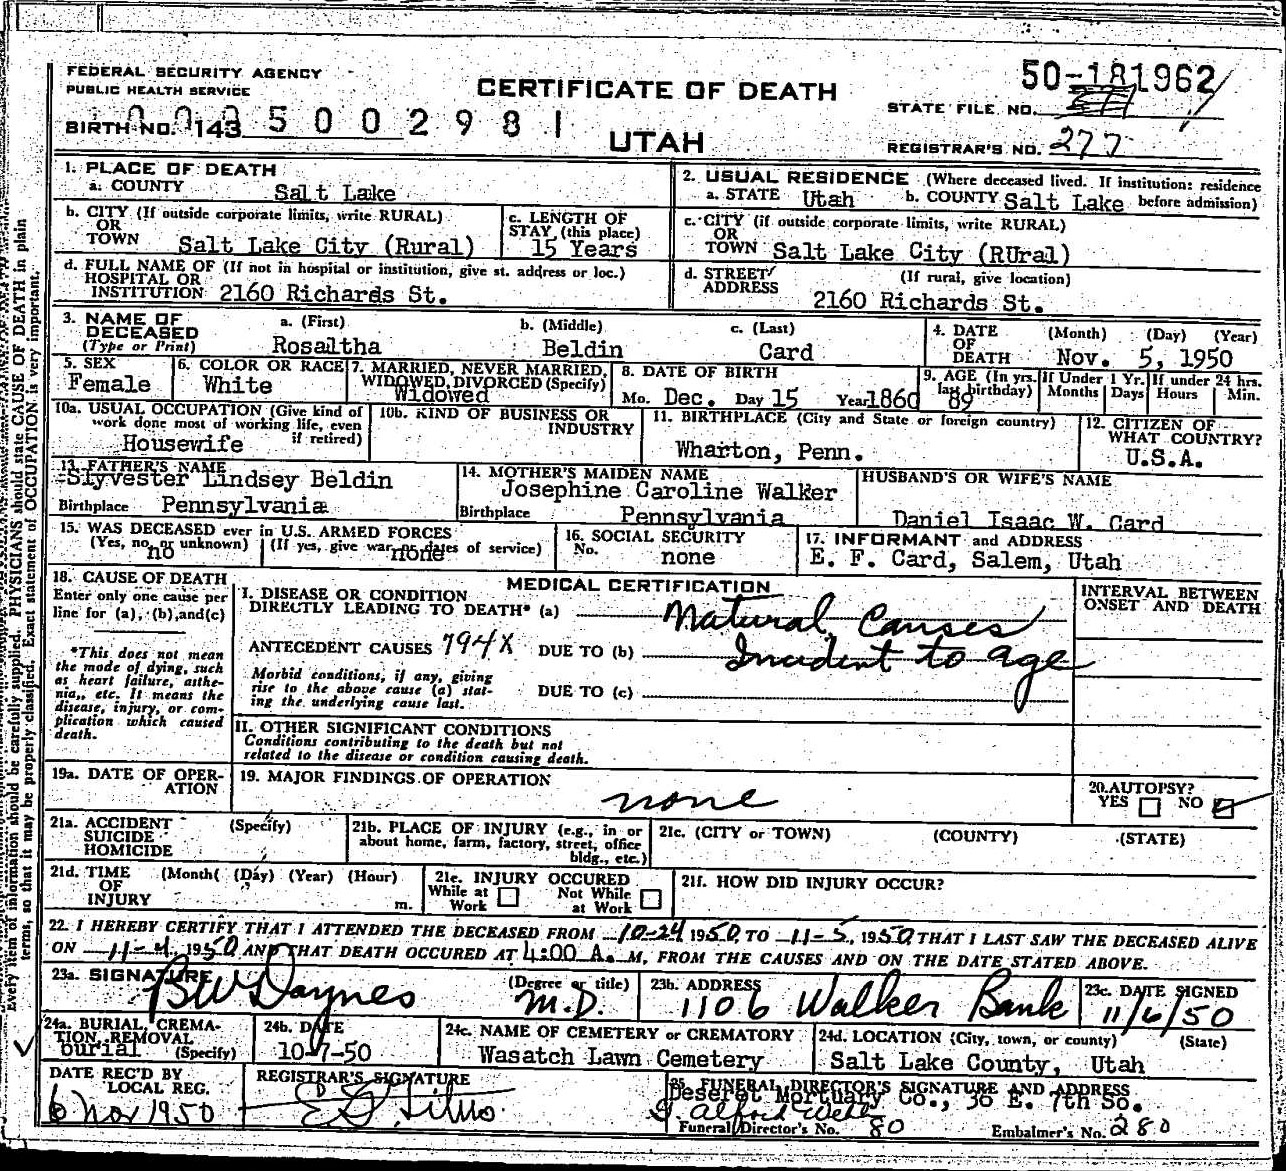 FEDERAL SECURITY AGENCY
PUBLIC HEALTH SERVICE
CERTIFICATE OF DEATH
50-181962
STATE FILE NO.
BIRTH NO. 143 5 0 0 2 9 8 1
UTAH
REGISTRAR'S NO. 277
1. PLACE OF DEATH
a. COUNTY Salt Lake
2. USUAL RESIDENCE (Where deceased lived. If institution: residence
a. STATE Utah b. COUNTY Salt Lake before admission)
b. CITY (If outside corporate limits, write RURAL)
OR
TOWN Salt Lake City (Rural)
c. LENGTH OF
STAY (this place)
15 Years
c. CITY (if outside corporate limits, write RURAL)
OR
TOWN Salt Lake City (RUral)
d. FULL NAME OF (If not in hospital or institution, give st. address or loc.)
HOSPITAL OR
INSTITUTION 2160 Richards St.
d. STREET (If rural, give location)
ADDRESS
2160 Richards St.
3. NAME OF
DECEASED
(Type or Print)
a. (First)
Rosaltha
b. (Middle)
Beldin
c. (Last)
Card
4. DATE (Month) (Day) (Year)
OF
DEATH Nov. 5, 1950
5. SEX
Female
6. COLOR OR RACE
White
7. MARRIED, NEVER MARRIED,
WIDOWED, DIVORCED (Specify)
Widowed
8. DATE OF BIRTH
Mo. Dec. Day 15 Year 1860
9. AGE (In yrs.
last birthday)
89
If Under 1 Yr.
Months Days
If under 24 hrs.
Hours Min.
10a. USUAL OCCUPATION (Give kind of
work done most of working life, even
if retired)
Housewife
10b. KIND OF BUSINESS OR
INDUSTRY
11. BIRTHPLACE (City and State or foreign country)
Wharton, Penn.
12. CITIZEN OF
WHAT COUNTRY?
U.S.A.
13. FATHER'S NAME
Slyvester Lindsey Beldin
Birthplace Pennsylvania
14. MOTHER'S MAIDEN NAME
Josephine Caroline Walker
Birthplace Pennsylvania
HUSBAND'S OR WIFE'S NAME
Daniel Isaac W. Card
15. WAS DECEASED ever in U.S. ARMED FORCES
(Yes, no, or unknown) (If yes, give war or dates of service)
no none
16. SOCIAL SECURITY
No. none
17. INFORMANT and ADDRESS
E. F. Card, Salem, Utah
18. CAUSE OF DEATH
Enter only one cause per
line for (a), (b), and (c)
*This does not mean
the mode of dying, such
as heart failure, asthe-
nia,, etc. It means the
disease, injury, or com-
plication which caused
death.
MEDICAL CERTIFICATION
I. DISEASE OR CONDITION
DIRECTLY LEADING TO DEATH* (a) Natural Causes
ANTECEDENT CAUSES 794X DUE TO (b) Incident to age
Morbid conditions, if any, giving
rise to the above cause (a) stat-
ing the underlying cause last.
DUE TO (c)
II. OTHER SIGNIFICANT CONDITIONS
Conditions contributing to the death but not
related to the disease or condition causing death.
INTERVAL BETWEEN
ONSET AND DEATH
19a. DATE OF OPER-
ATION
19. MAJOR FINDINGS OF OPERATION
none
20. AUTOPSY?
YES NO
21a. ACCIDENT (Specify)
SUICIDE
HOMICIDE
21b. PLACE OF INJURY (e.g., in or
about home, farm, factory, street, office
bldg., etc.)
21c. (CITY or TOWN) (COUNTY) (STATE)
21d. TIME (Month( (Day) (Year) (Hour)
OF
INJURY m.
21e. INJURY OCCURED
While at Not While
Work at Work
21f. HOW DID INJURY OCCUR?
22. I HEREBY CERTIFY THAT I ATTENDED THE DECEASED FROM 10-24 1950, TO 11-5, 1950, THAT I LAST SAW THE DECEASED ALIVE
ON 11-4, 1950 AND THAT DEATH OCCURED AT 4:00 A. M, FROM THE CAUSES AND ON THE DATE STATED ABOVE.
23a. SIGNATURE (Degree or title)
BW Daynes M.D.
23b. ADDRESS
1106 Walker Bank
23c. DATE SIGNED
11/6/50
24a. BURIAL, CREMA-
TION, REMOVAL
burial (Specify)
24b. DATE
10-7-50
24c. NAME OF CEMETERY or CREMATORY
Wasatch Lawn Cemetery
24d. LOCATION (City, town, or county) (State)
Salt Lake County, Utah
DATE REC'D BY
LOCAL REG.
6 Nov 1950
REGISTRAR'S SIGNATURE
25. FUNERAL DIRECTOR'S SIGNATURE AND ADDRESS
Deseret Mortuary Co., 36 E. 7th So.
Funeral Director's No. 80 Embalmer's No. 280
Every item of information should be carefully supplied. PHYSICIANS should state CAUSE OF DEATH in plain
terms, so that it may be properly classified. Exact statement of OCCUPATION is very important.